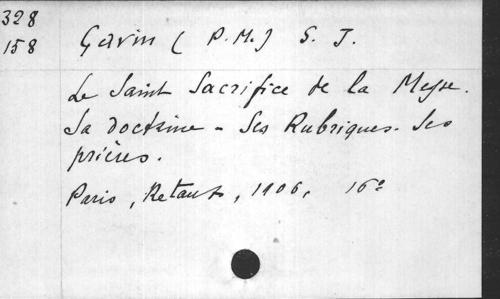 328
158
Gavin (P.M.) S. J.
Le Saint Sacrifice de la Messe.
Sa doctrine - Ses Rubriques - Ses
prières.
Paris, Retaux, 1906, 16º